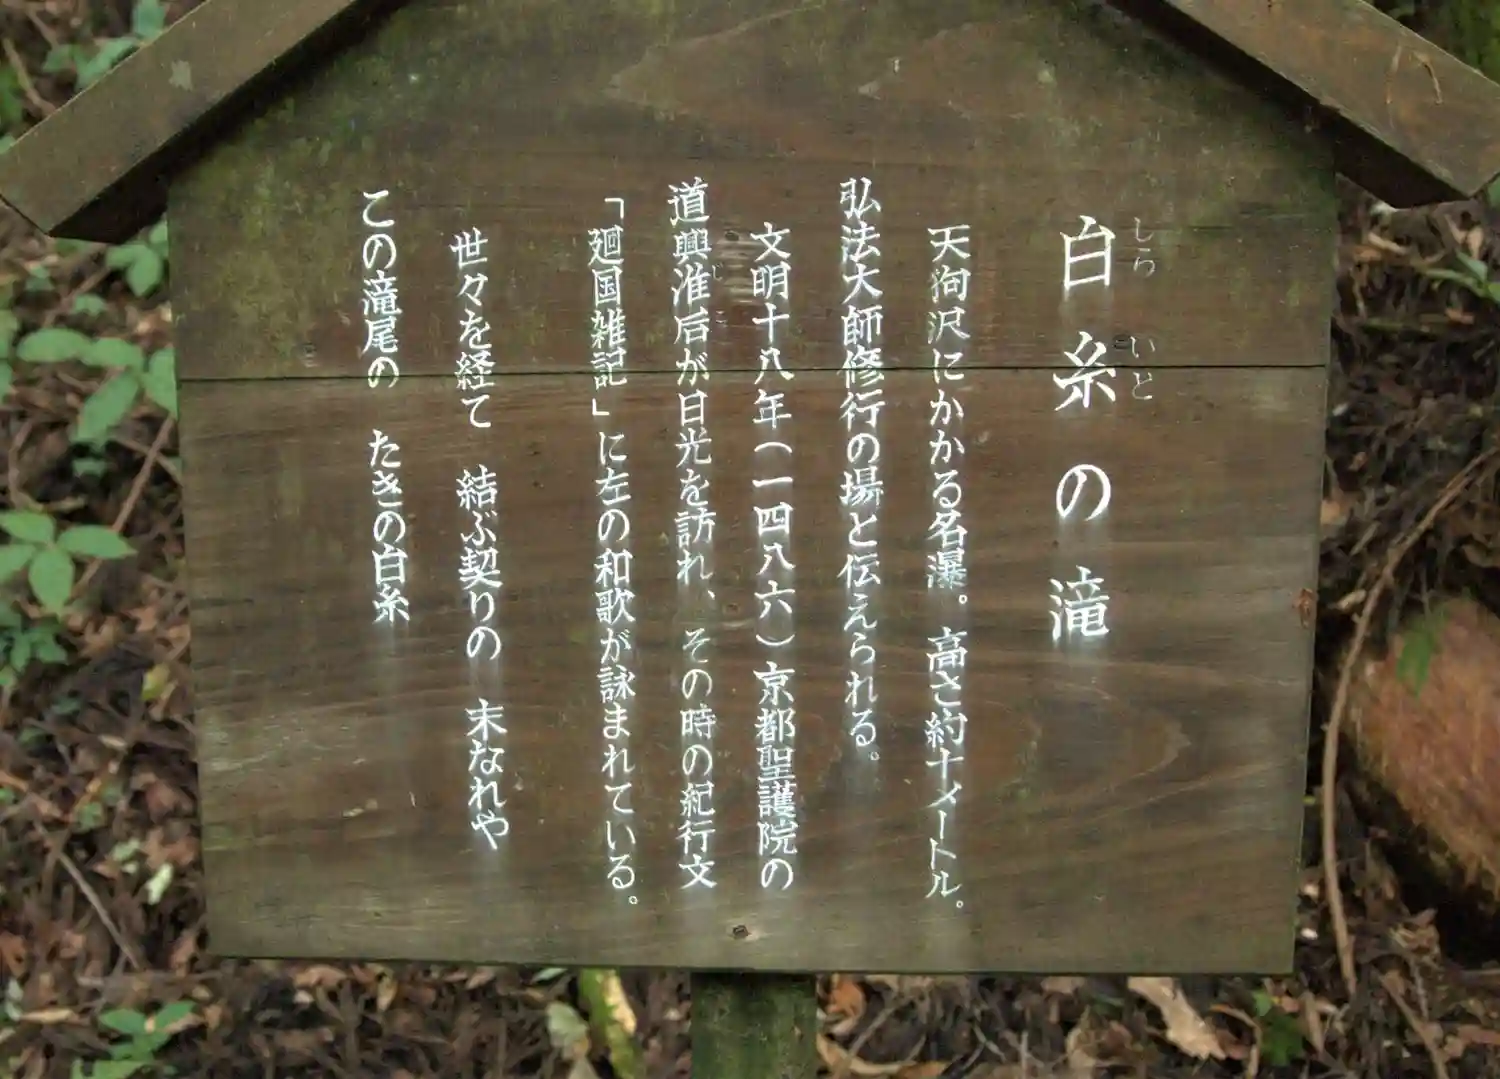 白糸の滝
しら いと
天狗沢にかかる名瀑。高さ約十メートル。
弘法大師修行の場と伝えられる。
文明十八年(一四八六)京都聖護院の
道興准后が日光を訪れ、その時の紀行文
じ こ
「廻国雑記」に左の和歌が詠まれている。
世々を経て 結ぶ契りの 末なれや
この滝尾の たきの白糸